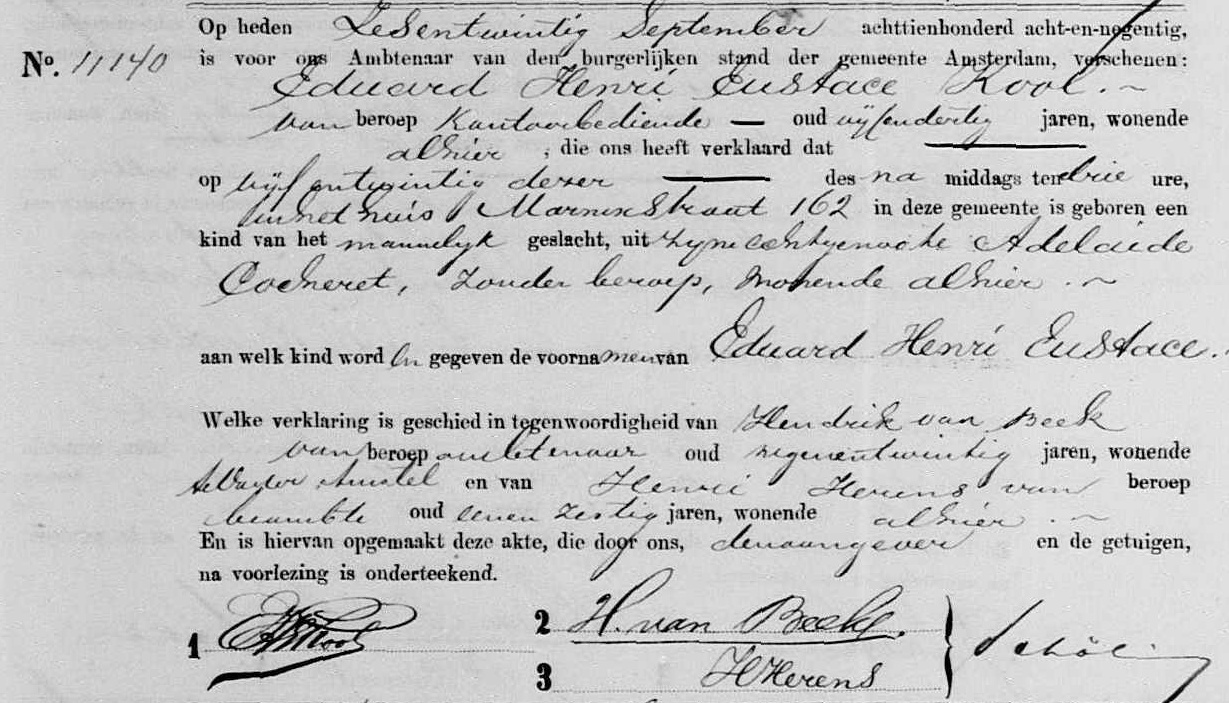 Op heden Zesentwintig September achttienhonderd acht-en-negentig,
No. 11140 is voor ons Ambtenaar van den burgerlijken stand der gemeente Amsterdam, verschenen:
Eduard Henri Eustace Kool.
van beroep Kantoorbediende — oud vijfendertig jaren, wonende
alhier, die ons heeft verklaard dat
op vijfentwintig dezer des na middags ten drie ure,
in het huis Marnixstraat 162 in deze gemeente is geboren een
kind van het mannelijk geslacht, uit zijne echtgenoote Adelaide
Cocheret, zonder beroep, wonende alhier.
aan welk kind word en gegeven de voornamen van Eduard Henri Eustace.
Welke verklaring is geschied in tegenwoordigheid van Hendrik van Beek
van beroep ambtenaar oud negenentwintig jaren, wonende
Amstel en van Henri Herens van beroep
beambte oud eenenzestig jaren, wonende alhier.
En is hiervan opgemaakt deze akte, die door ons, den aangever en de getuigen,
na voorlezing is onderteekend.
1 EHEKool 2 H. van Beek.
3 HHerens